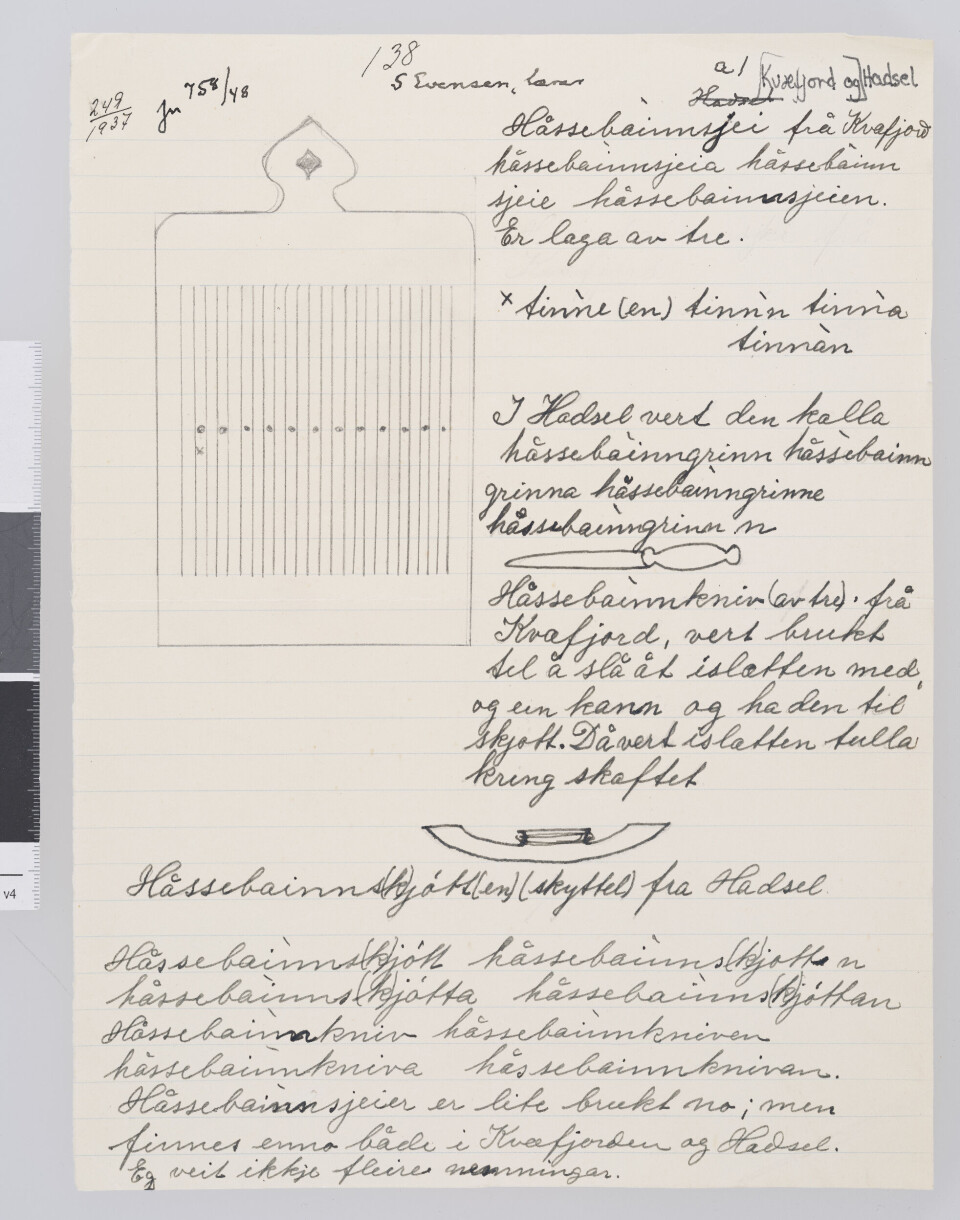 138
S Evensen, lærar
a/ [Kvæfjord og] Hadsel
Hadsel
249
1937
Jn 758/48
Håssebàinnsjei frå Kvæfjord
håssebàinnsjeia håssebàinn
sjeie håssebainnsjeien.
Er laga av tre.
x tinǹe (en) tinǹn tinǹa
tinnàn
x
I Hadsel vert den kalla
håssebàinngrinn håssèbainn
grinna håssebàinngrinne
håssebaìnngrinn n
Håssebàinnkniv (av tre). frå
Kvæfjord, vert brukt
til å slå åt islætten med,
og ein kann og ha den til
skjott. Då vert islætten tulla
kring skaftet
Håssebainns(k)jótt(en) (skyttel) fra Hadsel.
Håssebaìnns(k)jótt håssebaìnns(k)jott n
håssebaìnns(k)jótta håssebaìnns(k)jóttan
Håssebaìnnkniv håssebaìnnkniven
håssebaìnnkniva håssebainnknivan.
Håssebàinnsjeier er lite brukt no; men
finnes enno både i Kvæfjorden og Hadsel.
Eg veit ikkje fleire nemningar.
v4